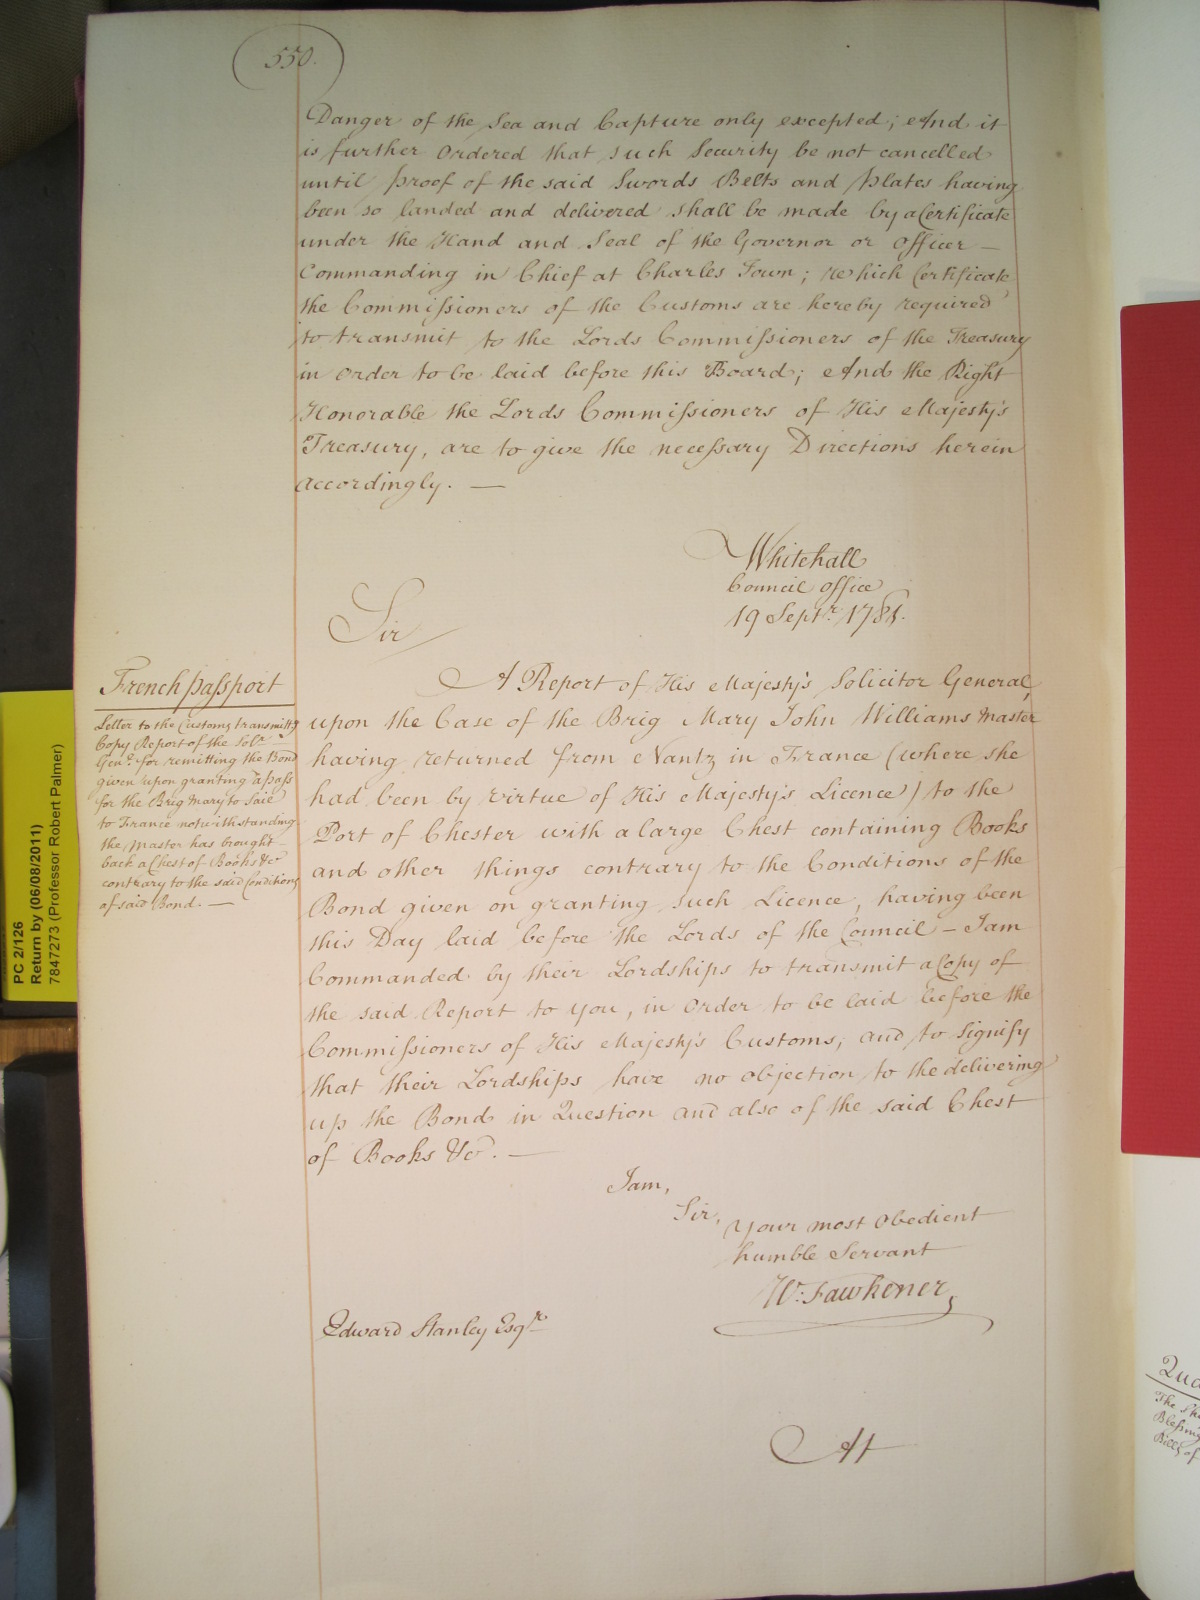 550.
Danger of the Sea and Capture only excepted; And it
is further Ordered that such Security be not cancelled
until proof of the said Swords Belts and Plates having
been so landed and delivered shall be made by a Certificate
under the Hand and Seal of the Governor or Officer —
Commanding in Chief at Charles Town; which Certificate
the Commissioners of the Customs are hereby required
to transmit to the Lords Commissioners of the Treasury
in Order to be laid before this Board; And the Right
Honorable the Lords Commissioners of His Majesty's
Treasury, are to give the necessary Directions herein
accordingly. —
Whitehall
Council Office
19 Septr. 1781.
Sir
French passport
Letter to the Customs transmittg
Copy Report of the Solr.
Genl. for remitting the Bond
given upon granting a pass
for the Brig Mary to Sail
to France notwithstanding
the Master has brought
back a Chest of Books &c
contrary to the said Conditions
of said Bond. —
A Report of His Majesty's Solicitor General,
upon the Case of the Brig Mary John Williams Master
having returned from Nantz in France (where she
had been by virtue of His Majesty's Licence) to the
Port of Chester with a large Chest containing Books
and other things contrary to the Conditions of the
Bond given on granting such Licence, having been
this Day laid before the Lords of the Council — I am
Commanded by their Lordships to transmit a Copy of
the said Report to you, in Order to be laid before the
Commissioners of His Majesty's Customs; and to Signify
that their Lordships have no objection to the delivering
up the Bond in Question and also of the said Chest
of Books &c. —
I am,
Sir,
Your most Obedient
humble Servant
W. Fawkener,
Edward Stanley Esqr.
At
PC 2/126
Return by (06/08/2011)
7847273 (Professor Robert Palmer)
The
Bills of